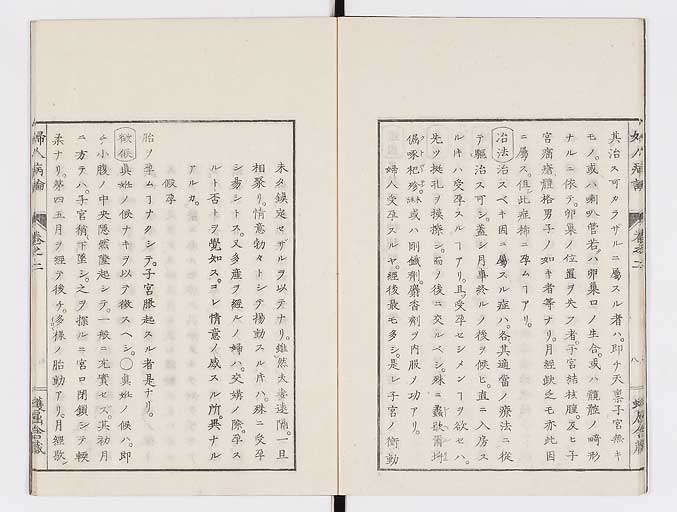 其治ス可カラザルニ屬スル者ハ。即チ天稟子宮無キ
モノ。或ハ喇叭管若クハ卵巢口ノ生合。或ハ髖骻ノ畸形
ナルニ依テ。卵巢ノ位置ヲ失フ者。子宮結核腫。及ヒ子
宮癌瘡體格男子ノ如キ者等ナリ。月經缺乏モ亦此因
ニ屬ス。但此症稀ニ孕ムヿアリ。
治法 治スベキ因ニ屬スル症ハ。各其適當ノ療法ニ從
テ驅治ス可シ。蓋シ月事終ルノ後ヲ候ヒ。直ニ入房ス
ルキハ受孕スルヿアリ。且受孕セシメンヿヲ欲セハ。
先ツ挺孔ヲ摸擦シ。而ノ後ニ交ルベシ。殊ニ
或ハ剛鐵劑。麝香劑ヲ内服ノ功アリ。
婦人受孕スルヤ。經後最モ多シ。是レ子宮ノ衝動
未タ鎮定セザルヲ以テナリ。雖然夫妻遠隔。一旦
相聚リ。情意勃々トシテ揚動スルキハ。殊ニ受孕
シ易シトス。又多產ヲ經ルノ婦ハ。交媾ノ際。孕ス
ルト否トヲ覺知ス。コレ情意ノ感スル所。異ナル
アルカ。
假孕
胎ヲ孕ムヿナクシテ。子宮脹起スル者是ナリ。
徵候 眞娠ノ候ナキヲ以テ徵スヘシ。〇眞娠ノ候ハ。即
チ小腹ノ中央隠然隆起シテ。一般ニ充實セス。其初月
ニ方テハ。子宮稍下墜シ。之ヲ探ルニ宮口閉鎖シテ軟
柔ナリ。第四五月ヲ經テ後チ。多樣ノ胎動アリ。月經歇
婦人病論 卷之二